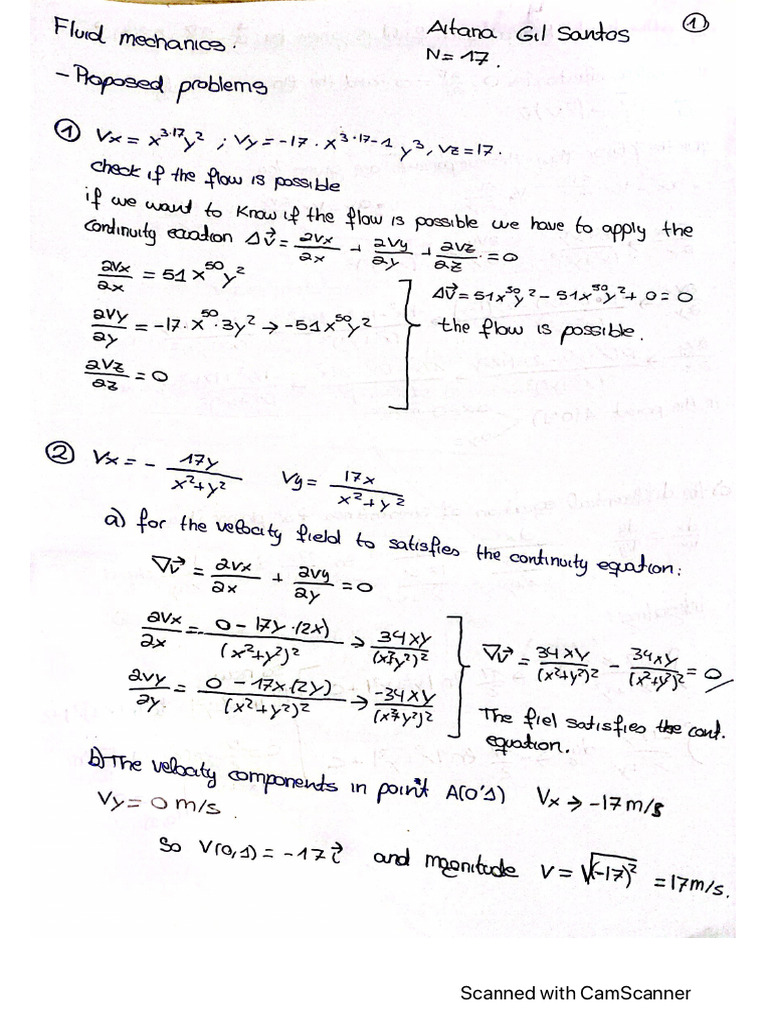 Fluid mechanics. Aitana Gil Santos ①
N= 17.
- Proposed problems
① Vx = x^3·17 y^2 ; Vy = -17 · x^3·17-1 y^3, Vz = 17.
check if the flow is possible
if we want to know if the flow is possible we have to apply the
continuity equation Δv⃗ = ∂Vx/∂x + ∂Vy/∂y + ∂Vz/∂z = 0
∂Vx/∂x = 51 x^50 y^2
Δv⃗ = 51x^50 y^2 - 51x^50 y^2 + 0 = 0
∂Vy/∂y = -17 · x^50 · 3y^2 → -51x^50 y^2
the flow is possible.
∂Vz/∂z = 0
② Vx = - 17y/(x^2+y^2) Vy = 17x/(x^2+y^2)
a) for the velocity field to satisfies the continuity equation:
∇v⃗ = ∂Vx/∂x + ∂Vy/∂y = 0
∂Vx/∂x = 0 - 17y·(2x)/(x^2+y^2)^2 → 34xy/(x^2+y^2)^2
∇v⃗ = 34xy/(x^2+y^2)^2 - 34xy/(x^2+y^2)^2 = 0
∂Vy/∂y = 0 - 17x·(2y)/(x^2+y^2)^2 → -34xy/(x^2+y^2)^2
The fiel satisfies the cont.
equation.
b) The velocity components in point A(0'1) Vx → -17 m/s
Vy = 0 m/s.
So V(0,1) = -17 i⃗ and magnitude V = √(-17)^2 = 17 m/s.
Scanned with CamScanner